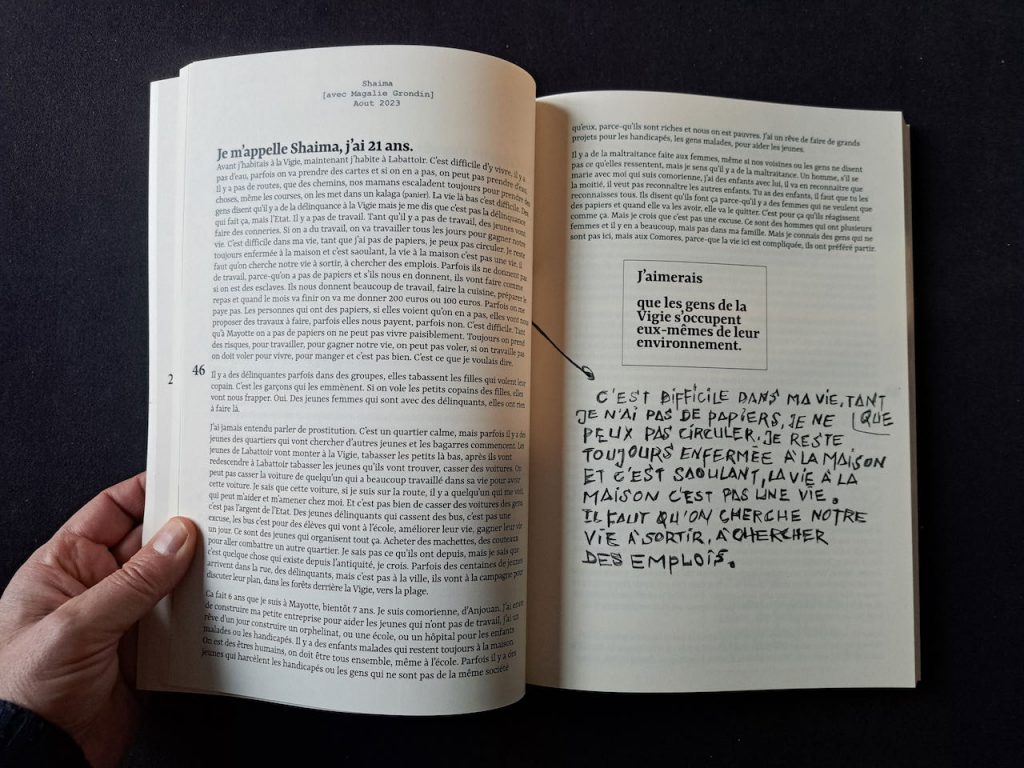 Shaima
[avec Magalie Grondin]
Aout 2023
Je m'appelle Shaima, j'ai 21 ans.
Avant j'habitais à la Vigie, maintenant j'habite à Labattoir. C'est difficile d'y vivre, il y a
pas d'eau, parfois on va prendre des cartes et si on en a pas, on peut pas prendre d'eau.
Il y a pas de routes, que des chemins, nos mamans escaladent toujours pour prendre des
choses, même les courses, on les met dans un kalaga (panier). La vie là bas c'est difficile. Des
gens disent qu'il y a de la délinquance à la Vigie mais je me dis que c'est pas la délinquance
qui fait ça, mais l'Etat. Il y a pas de travail. Tant qu'il y a pas de travail, des jeunes vont
faire des conneries. Si on a du travail, on va travailler tous les jours pour gagner notre
vie. C'est difficile dans ma vie, tant que j'ai pas de papiers, je peux pas circuler. Je reste
toujours enfermée à la maison et c'est saoulant, la vie à la maison c'est pas une vie. il
faut qu'on cherche notre vie à sortir, à chercher des emplois. Parfois ils ne donnent pas
de travail, parce-qu'on a pas de papiers et s'ils nous en donnent, ils vont faire comme
si on est des esclaves. Ils nous donnent beaucoup de travail, faire la cuisine, préparer le
repas et quand le mois va finir on va me donner 200 euros ou 100 euros. Parfois on me
paye pas. Les personnes qui ont des papiers, si elles voient qu'on en a pas, elles vont nous
proposer des travaux à faire, parfois elles nous payent, parfois non. C'est difficile. Tant
qu'à Mayotte on a pas de papiers on ne peut pas vivre paisiblement. Toujours on prend
des risques, pour travailler, pour gagner notre vie, on peut pas voler, si on travaille pas
on doit voler pour vivre, pour manger et c'est pas bien. C'est ce que je voulais dire.
2
46
Il y a des délinquantes parfois dans des groupes, elles tabassent les filles qui volent leur
copain. C'est les garçons qui les emmènent. Si on vole les petits copains des filles, elles
vont nous frapper. Oui. Des jeunes femmes qui sont avec des délinquants, elles ont rien
à faire là.
J'ai jamais entendu parler de prostitution. C'est un quartier calme, mais parfois il y a des
jeunes des quartiers qui vont chercher d'autres jeunes et les bagarres commencent. Les
jeunes de Labattoir vont monter à la Vigie, tabasser les petits là bas, après ils vont
redescendre à Labattoir tabasser les jeunes qu'ils vont trouver, casser des voitures. On
peut pas casser la voiture de quelqu'un qui a beaucoup travaillé dans sa vie pour avoir
cette voiture. Je sais que cette voiture, si je suis sur la route, il y a quelqu'un qui me voit,
qui peut m'aider et m'amener chez moi. Et c'est pas bien de casser des voitures des gens,
c'est pas l'argent de l'Etat. Des jeunes délinquants qui cassent des bus, c'est pas une
excuse, les bus c'est pour des élèves qui vont à l'école, améliorer leur vie, gagner leur vie
un jour. Ce sont des jeunes qui organisent tout ça. Acheter des machettes, des couteaux
pour aller combattre un autre quartier. Je sais pas ce qu'ils ont depuis, mais je sais que
c'est quelque chose qui existe depuis l'antiquité, je crois. Parfois des centaines de jeunes
arrivent dans la rue, des délinquants, mais c'est pas à la ville, ils vont à la campagne pour
discuter leur plan, dans les forêts derrière la Vigie, vers la plage.
Ça fait 6 ans que je suis à Mayotte, bientôt 7 ans. Je suis comorienne, d'Anjouan. J'ai envie
de construire ma petite entreprise pour aider les jeunes qui n'ont pas de travail, j'ai un
rêve d'un jour construire un orphelinat, ou une école, ou un hôpital pour les enfants
malades ou les handicapés. Il y a des enfants malades qui restent toujours à la maison.
On est des êtres humains, on doit être tous ensemble, même à l'école. Parfois il y a des
jeunes qui harcèlent les handicapés ou les gens qui ne sont pas de la même société
qu'eux, parce-qu'ils sont riches et nous on est pauvres. J'ai un rêve de faire de grands
projets pour les handicapés, les gens malades, pour aider les jeunes.
Il y a de la maltraitance faite aux femmes, même si nos voisines ou les gens ne disent
pas ce qu'elles ressentent, mais je sens qu'il y a de la maltraitance. Un homme, s'il se
marie avec moi qui suis comorienne, j'ai des enfants avec lui, il va en reconnaitre que
la moitié, il veut pas reconnaître les autres enfants. Tu as des enfants, il faut que tu les
reconnaisses tous. Ils disent qu'ils font ça parce-qu'il y a des femmes qui ne veulent que
des papiers et quand elle va les avoir, elle va le quitter. C'est pour ça qu'ils réagissent
comme ça. Mais je crois que c'est pas une excuse. Ce sont des hommes qui ont plusieurs
femmes et il y en a beaucoup, mais pas dans ma famille. Mais je connais des gens qui ne
sont pas ici, mais aux Comores, parce-que la vie ici est compliquée, ils ont préféré partir.
J'aimerais
que les gens de la
Vigie s'occupent
eux-mêmes de leur
environnement.
C'EST DIFFICILE DANS MA VIE, TANT
JE N'AI PAS DE PAPIERS, JE NE QUE
PEUX PAS CIRCULER. JE RESTE
TOUJOURS ENFERMÉE À LA MAISON
ET C'EST SAOULANT, LA VIE À LA
MAISON C'EST PAS UNE VIE.
IL FAUT QU'ON CHERCHE NOTRE
VIE À SORTIR, À CHERCHER
DES EMPLOIS.